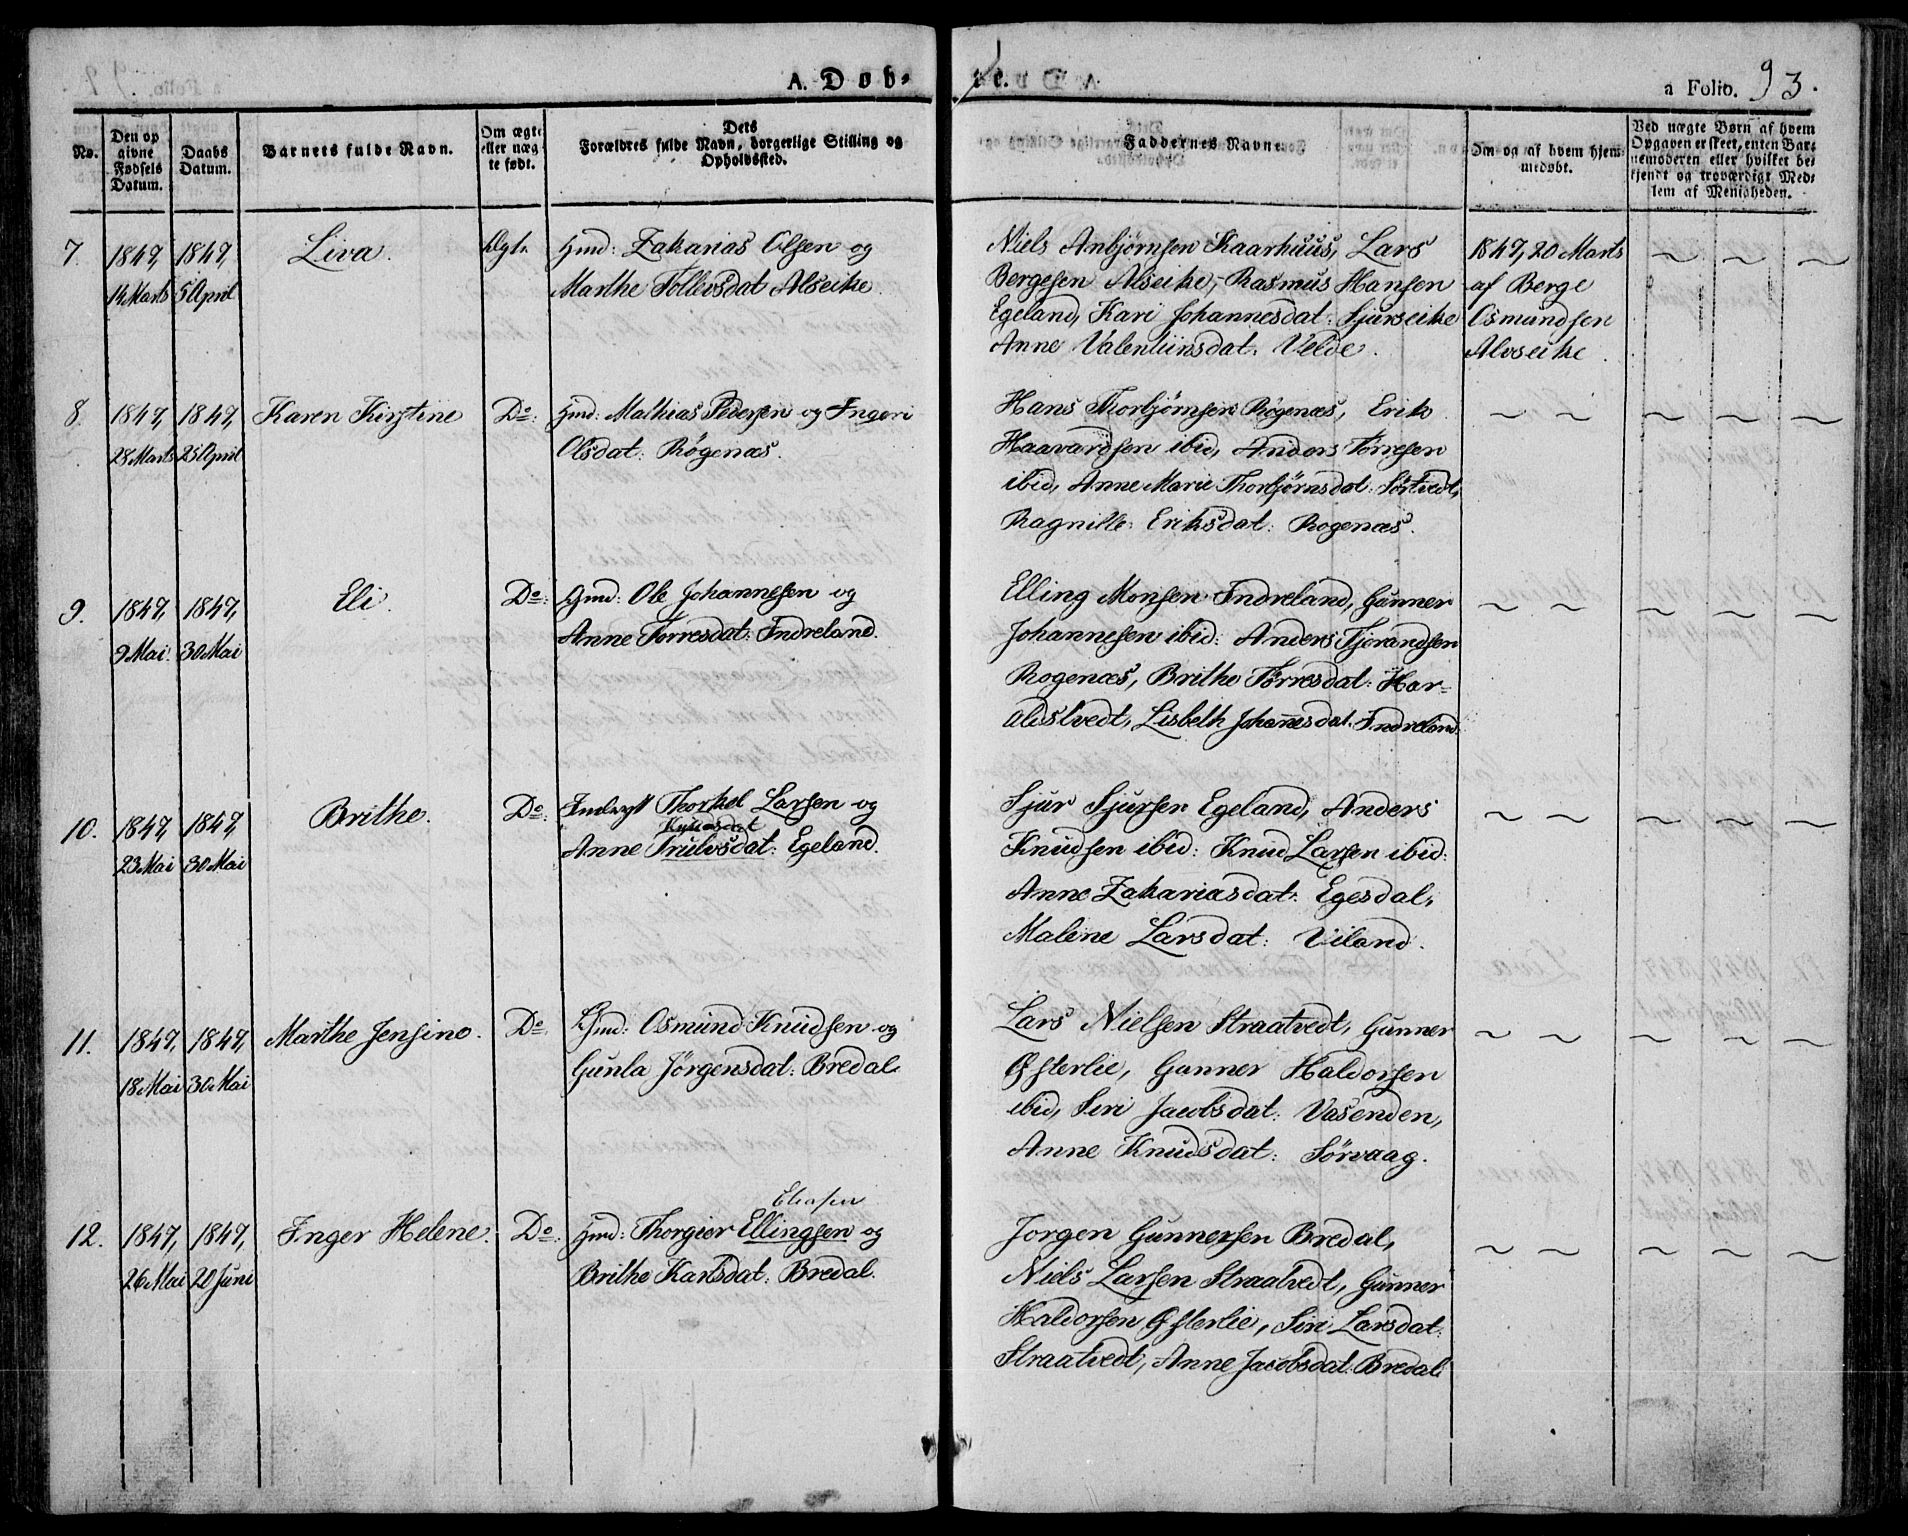 A. Døb-
te.
a Folio. 93.
No.
Den op
givne
Fødsels
Datum.
Daabs
Datum.
Barnets fulde Navn.
Om ægte
eller uæg
te født.
Dets
Forældres fulde Navn, borgerlige Stilling og
Opholdssted.
Faddernes Navne.
Om og af hvem hjem
medøbt.
Ved uægte Børn af hvem
Opgaven er skeet, enten Bar-
nemoderen eller hvilket be-
kjendt og troværdigt Med-
lem af Menigheden.
7. 1847, 1847, Liva. Ægte Gmd: Zakarias Olsen og
14 Marts 5 April Marthe Tollevsdat Alseike.
Niels Anbjørnsen Kaarhuus, Lars
Bergesen Alseike, Rasmus Hansen
Egeland, Kari Johannesdat: Sjurseike
Anne Valentiinsdat. Velde.
1847, 20 Marts
af Berge
Osmundsen
Alvseike.
8. 1847, 1847, Karen Kirstine Do: Gmd: Mathias Pedersen og Ingeri
28 Marts 25 April Olsdat: Røgenæs.
Hans Thorbjørnsen Røgenæs, Erik
Haavardsen ibid, Anders Tørresen
ibid, Anne Marie Thorbjørnsdat: Sørtvedt,
Ragnille: Eriksdat: Rogenæs.
9. 1847, 1847, Eli. Do: Gmd: Ole Johannesen og
9 Mai. 30 Mai Anne Torresdat: Indreland.
Elling Monsen Indreland, Gunner
Johannesen ibid: Anders Tjorandsen
Rogenæs, Brithe Tørresdat: Har-
aldstvedt, Lisbeth Johannesdat. Indreland.
10. 1847, 1847, Brithe. Do: Inderst Thorkel Larsen og
23 Mai 30 Mai Anne Trulvsdat: Egeland.
Sjur Sjursen Egeland, Anders
Knudsen ibid: Knud Larsen ibid:
Anne Zakariasdat: Egesdal,
Malene Larsdat: Viland.
11. 1847, 1847, Marthe Jensine. Do. Gmd: Osmund Knudsen og
18 Mai 30 Mai Gunla Jørgensdat: Bredal.
Lars Nielsen Straatvedt, Gunner
Østerlie, Gunner Haldorsen
ibid, Siri Jacobsdat: Vasenden,
Anne Knudsdat: Sørvaag.
Eliasen
12. 1847, 1847, Inger Helene. Do. Gmd: Thorgier Ellingsen og
26 Mai 20 Juni Brithe Karlsdat: Bredal.
Jorgen Gunnersen Bredal,
Niels Larsen Straatvedt, Gunner
Haldorsen Østerlie, Siri Larsdat:
Straatvedt, Anne Jacobsdat: Bredal